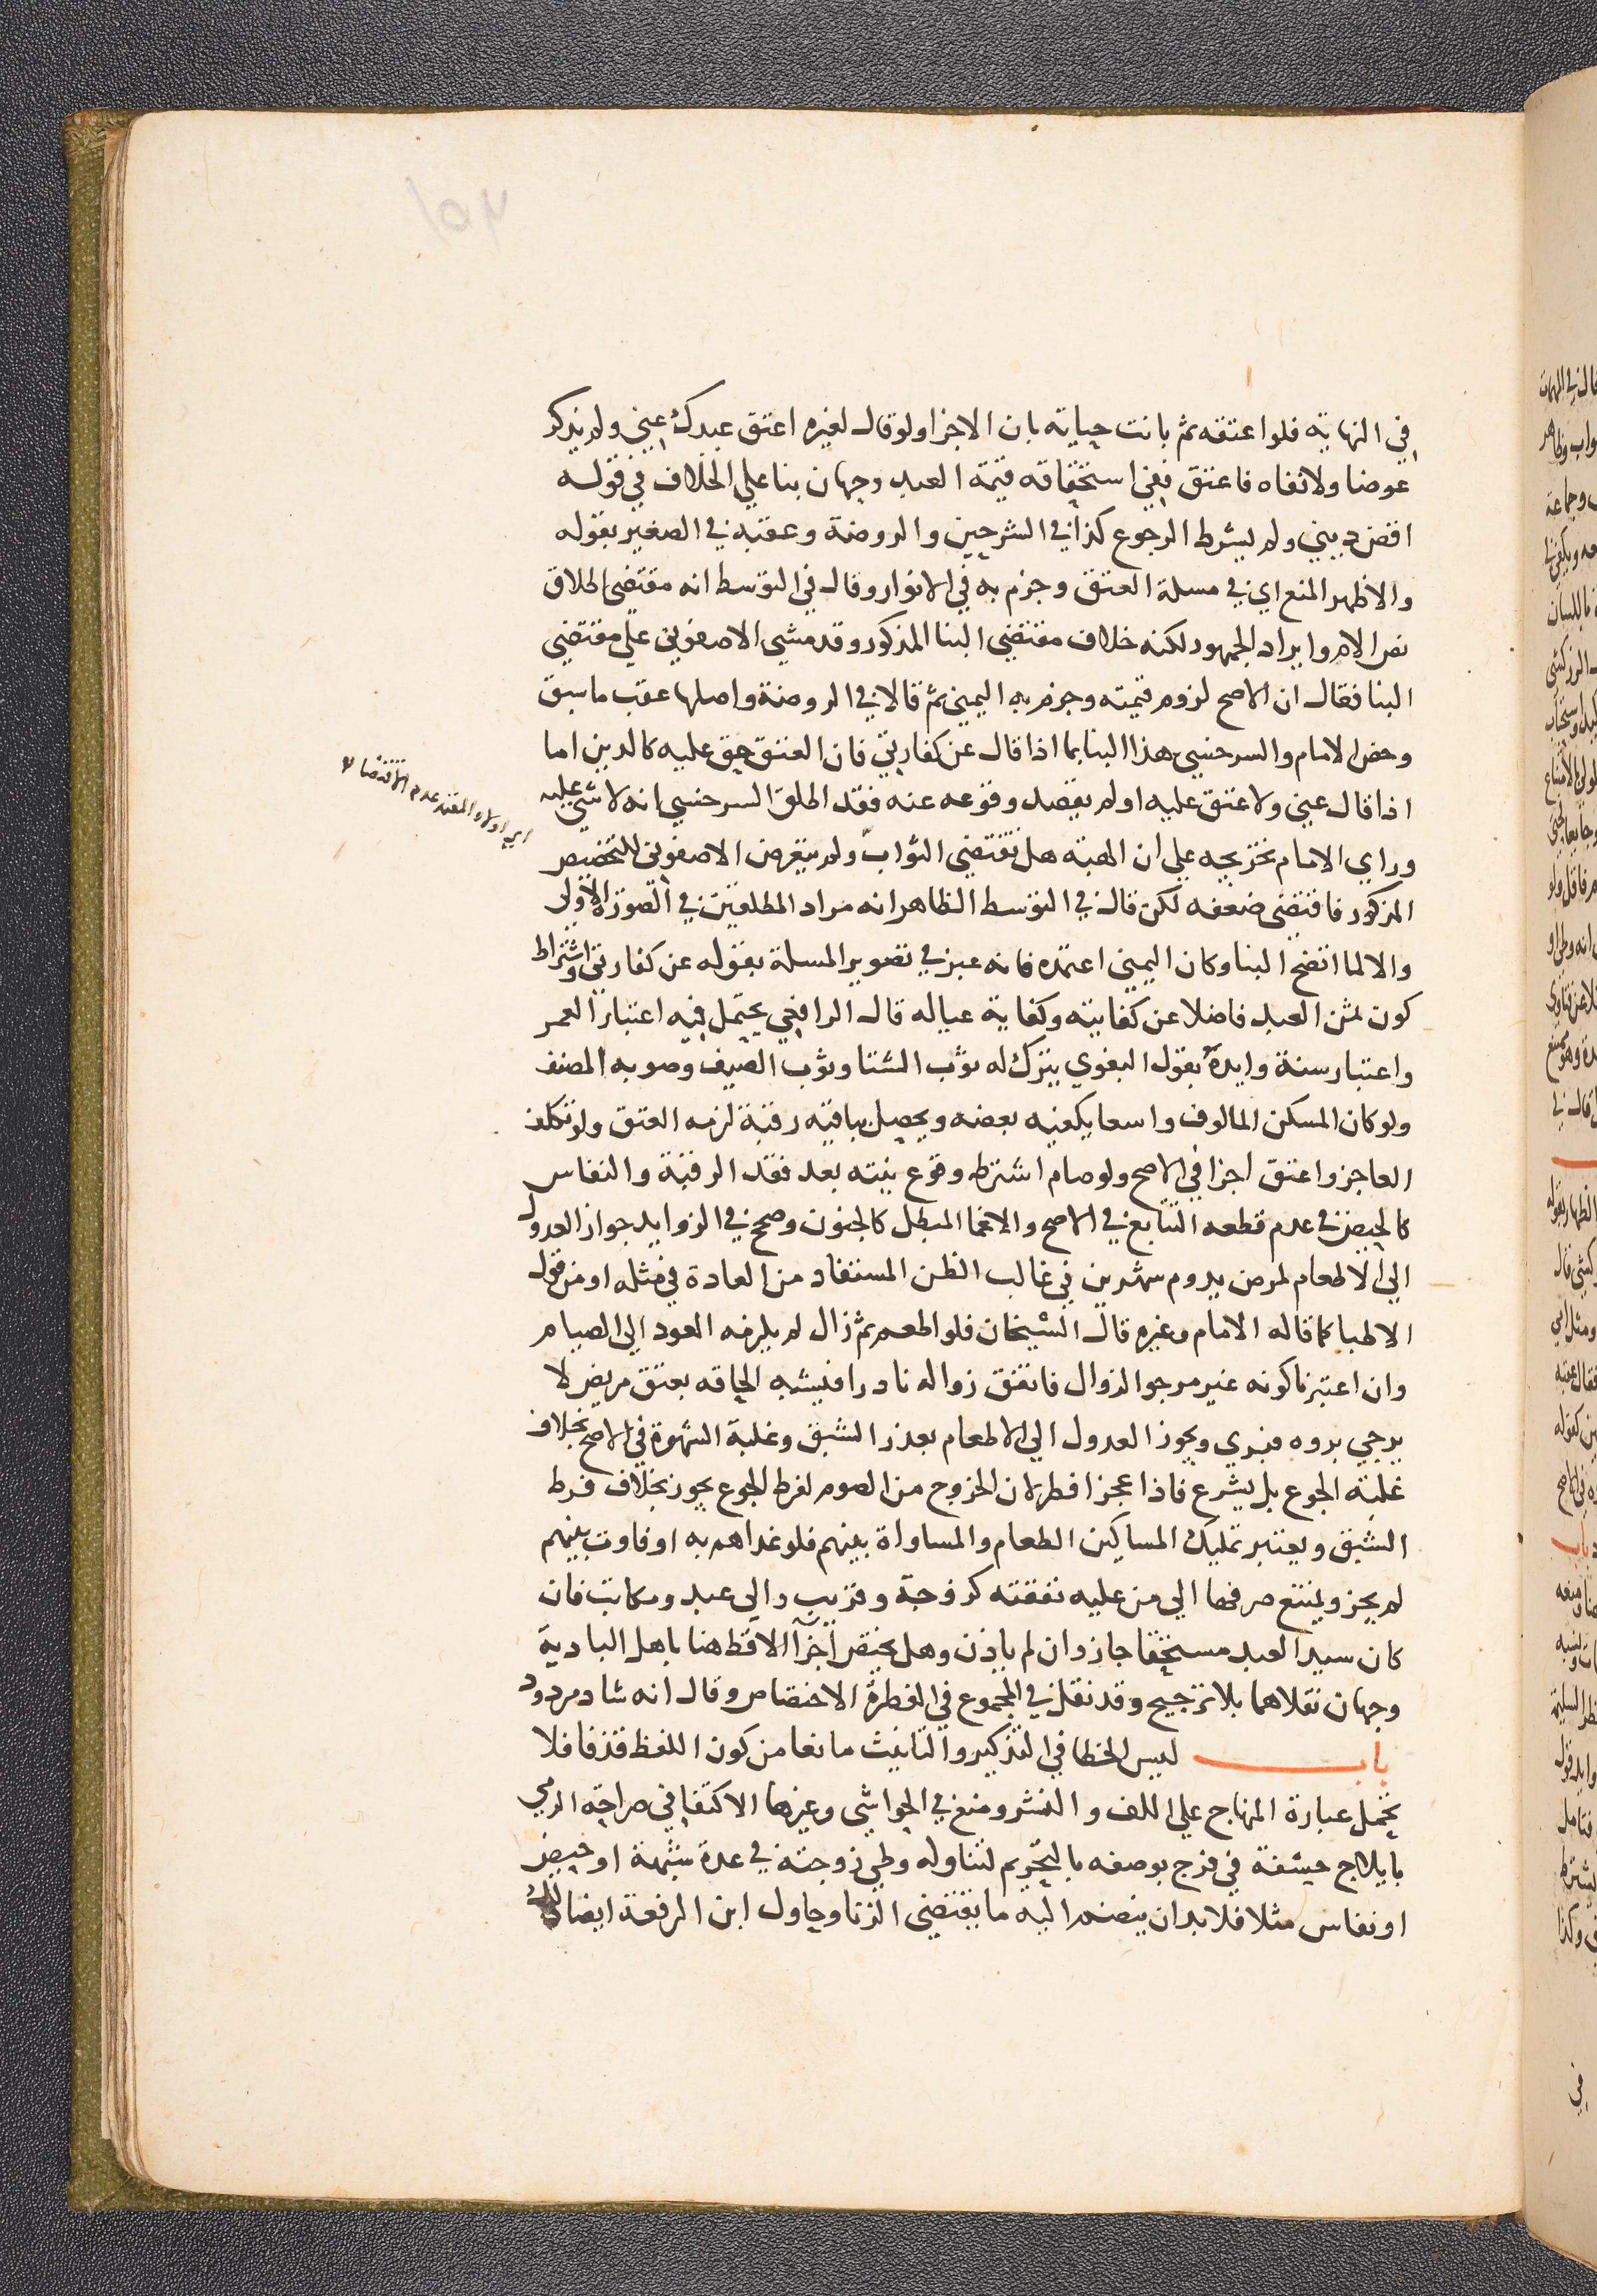 ١٥٣
في النهاية فلو اعتقه ثم بانت حياته بان الاجزا ولو قال لغيره اعتق عبدك عني ولم يذكر
عوضا ولا نفاه فاعتق ففي استحقاقه قيمة العبد وجهان بنا علي الخلاف في قوله
اقض ديني ولم يشرط الرجوع كذا في الشرحين والروضة وعقبه في الصغير بقوله
والاظهر المنع اي في مسلة العتق وجزم به في الانوار وقال في التوسط انه مقتضي اطلاق
نص الام وايراد الجمهور لكنه خلاف مقتضي البنا المذكور وقد مشي الاصفوني علي مقتضي
البنا فقال ان الاصح لزوم قيمته وجزم به اليمني ثم قالا في الروضة واصلها عقب ما سبق
وخص الامام والسرخسي هذا البنا بما اذا قال عن كفارتي فان العتق حق عليه كالدين اما
اذا قال عني ولا عتق عليه او لم يقصد وقوعه عنه فقد اطلق السرخسي انه لا شي عليه
وراي الامام تخريجه علي ان الهبة هل تقتضي الثواب ولم يتعرض الاصفوني للتخصيص
المذكور فاقتضي ضعفه لكن قال في التوسط الظاهر انه مراد المطلقين في الصورة الاولي
والا لما اتضح البنا وكان اليمني اعتمده فانه عبر في تصوير المسلة بقوله عن كفارتي واشتراط
كون ثمن العبد فاضلا عن كفايته وكفاية عياله قال الرافعي يحتمل فيه اعتبار العمر
واعتبار سنة وايده بقول البغوي يترك له ثوب الشتا وثوب الصيف وصوبه المصنف
ولو كان المسكن المالوف واسعا يكفيه بعضه ويحصل بباقيه رقبة لزمه العتق ولو تكلف
العاجز واعتق اجزا في الاصح ولو صام اشترط وقوع نيته بعد فقد الرقبة والنفاس
كالحيض في عدم قطعه التتابع في الاصح والاغما المبطل كالجنون وصحح في الزوايد جواز العدول
الي الاطعام لمرض يدوم شهرين في غالب الظن المستفاد من العادة في مثله او من قول
الاطبا كما قاله الامام وغيره قال الشيخان فلو اطعم ثم زال لم يلزمه العود الي الصيام
وان اعتبرنا كونه غير مرجو الزوال فاتفق زواله نادرا فيشبه الحاقه بعتق مريض لا
يرجي بروه فبري ويجوز العدول الي الاطعام بعذر الشبق وغلبة الشهوة في الاصح بخلاف
غلبة الجوع بل يشرع فاذا عجز افطر لان الخروج من الصوم لفرط الجوع يجوز بخلاف فرط
الشبق ويعتبر تمليك المساكين الطعام والمساواة بينهم فلو غداهم به او فاوت بينهم
لم يجز ويمتنع صرفها الي من عليه نفقته كزوجة وقريب والي عبد ومكاتب فان
كان سيد العبد مستحقا جاز وان لم ياذن وهل يختص اجزا الاقط هنا باهل البادية
وجهان نقلاهما بلا ترجيح وقد نقل في المجموع في الفطرة الاختصاص وقال انه شاد مردود
باب ليس الخطا في التذكير والتانيث مانعا من كون اللفظ قذفا فلا
تحمل عبارة المنهاج علي اللف والنشر ومنع في الحواشي وغيرها الاكتفا في صراحة الرمي
بايلاج حشفة في فرج بوصفه بالتحريم لتناوله وطي زوجته في عدة شبهة او حيض
او نفاس مثلا فلا بد ان ينضم اليه ما يقتضي الزنا وحاول ابن الرفعة ايضا
اي اولاه المعتمد عدم الاقتضا